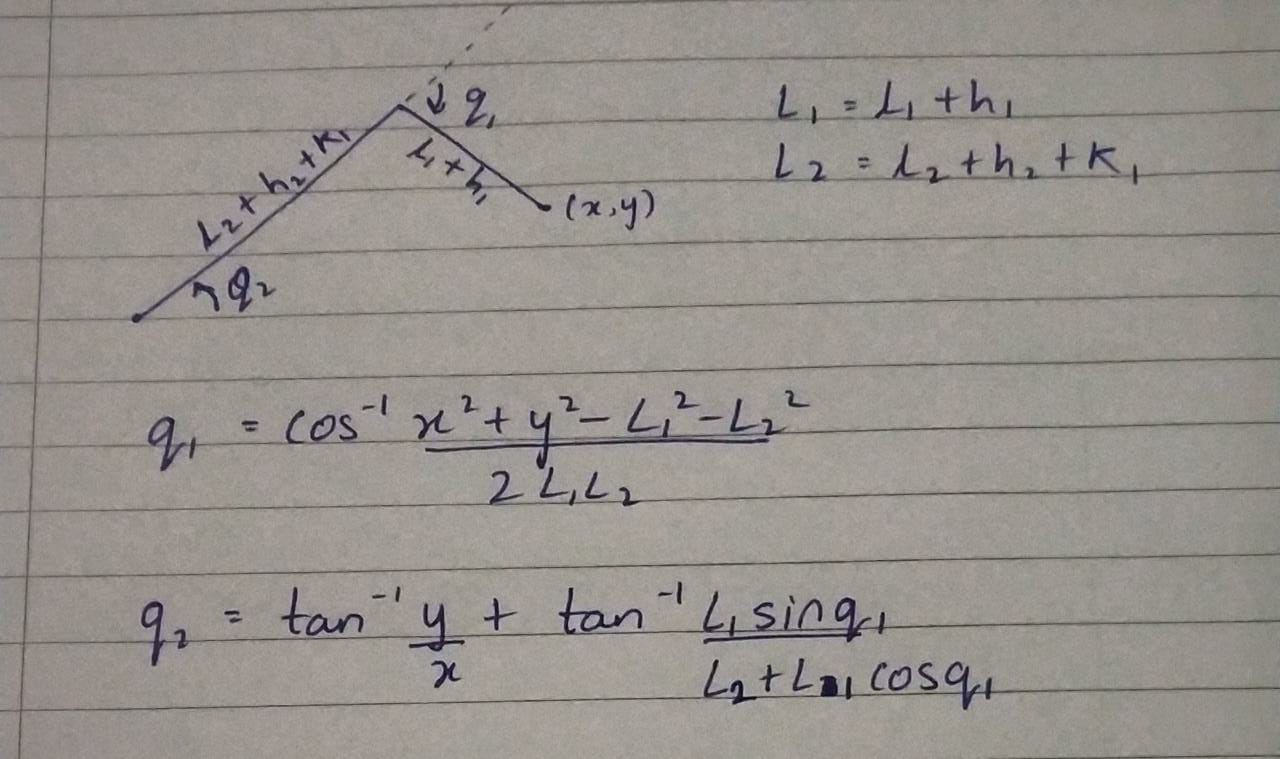 q₁
L₂ + h₂ + K₁
L₁ + h₁
(x,y)
q₂
L₁ = L₁ + h₁
L₂ = L₂ + h₂ + K₁
q₁ = cos⁻¹ x² + y² - L₁² - L₂²
2 L₁L₂
q₂ = tan⁻¹ y + tan⁻¹ L₁ sinq₁
x L₂ + L₁ cosq₁